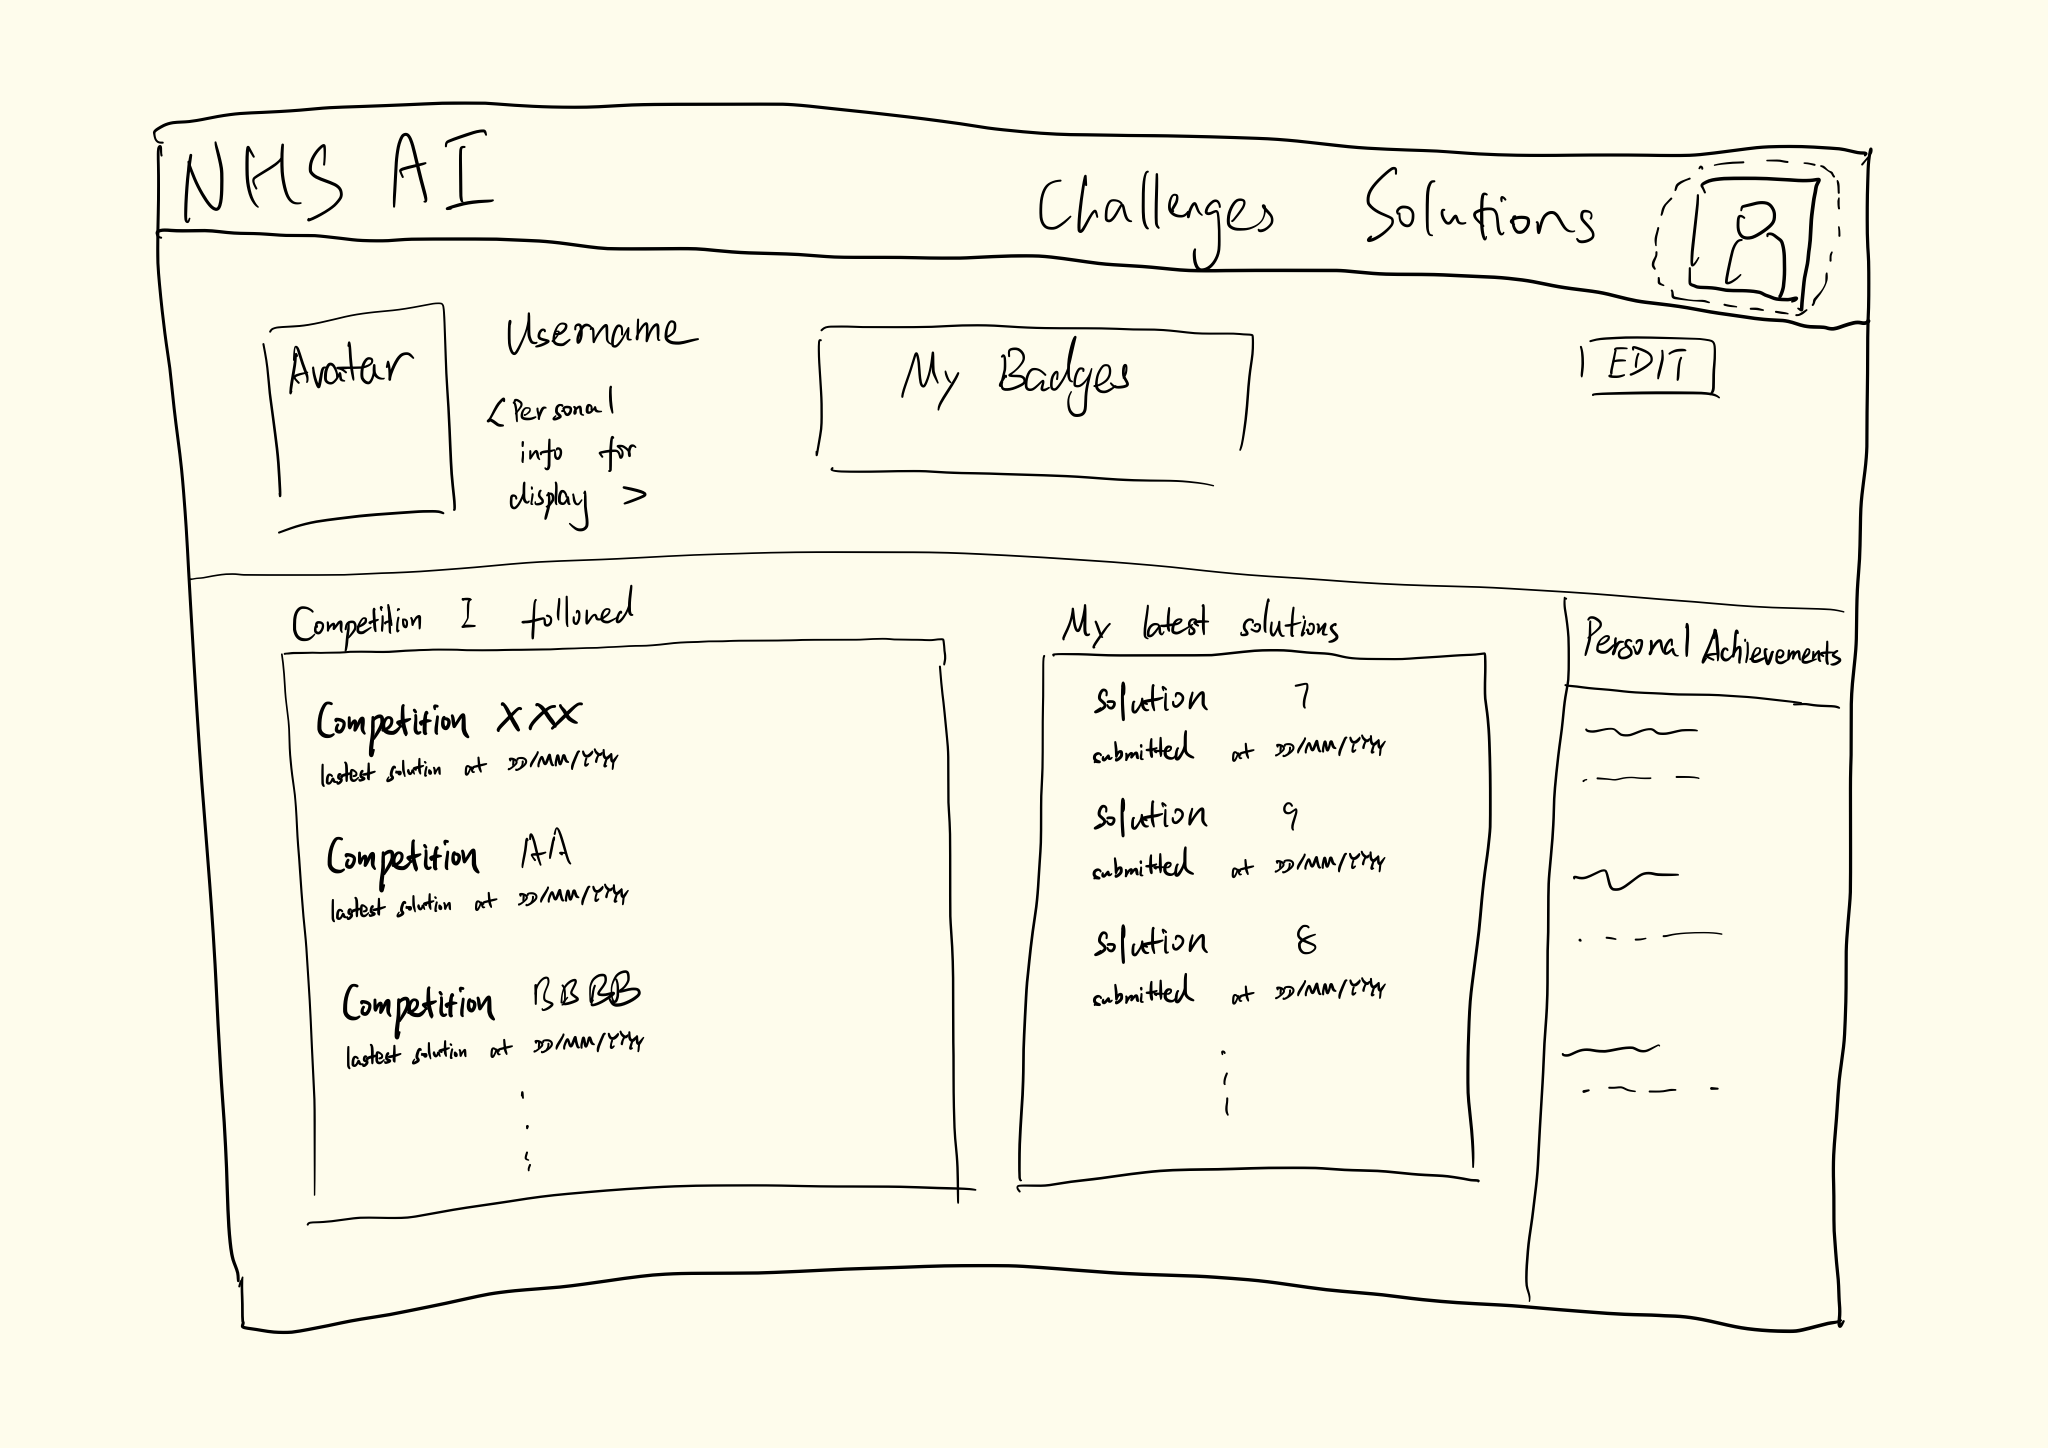 NHS AI
Challenges Solutions
Avatar
Username
<Personal
info for
display >
My Badges
EDIT
Competition I followed
Competition XXX
lastest solution at DD/MM/YYYY
Competition AA
lastest solution at DD/MM/YYYY
Competition BBBB
lastest solution at DD/MM/YYYY
My latest solutions
solution 7
submitted at DD/MM/YYYY
solution 9
submitted at DD/MM/YYYY
solution 8
submitted at DD/MM/YYYY
Personal Achievements